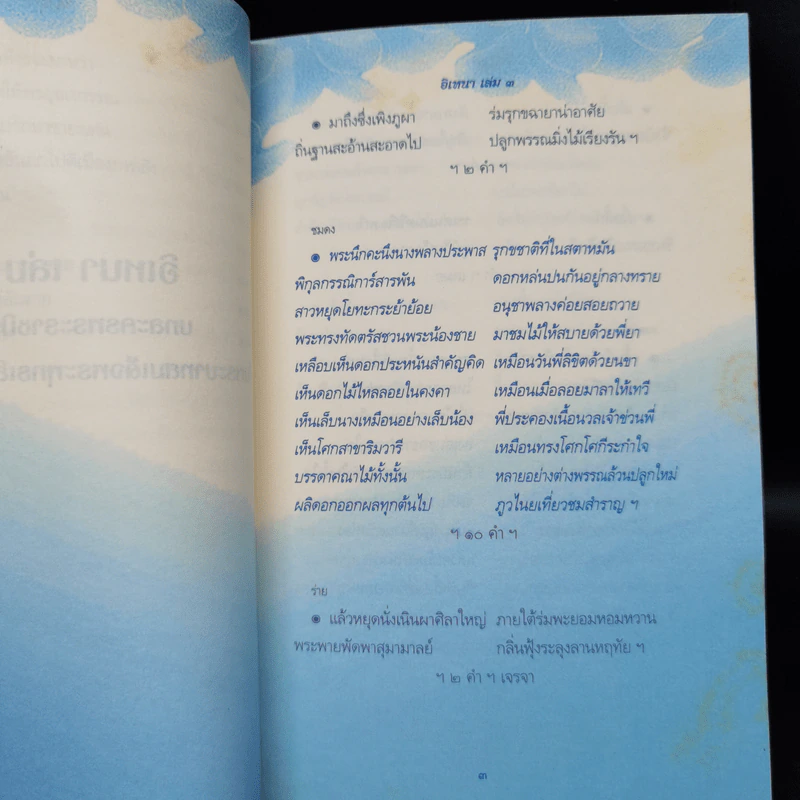 อิเหนา เล่ม ๓
๏ มาถึงซึ่งเพิงภูผา ร่มรุกขฉายาน่าอาศัย
ถิ่นฐานสะอ้านสะอาดไป ปลูกพรรณมิ่งไม้เรียงรัน ฯ
ฯ ๒ คำ ฯ
ชมดง
๏ พระนึกคะนึงนางพลางประพาส รุกขชาติที่ในสตาหมัน
พิกุลกรรณิการ์สารพัน ดอกหล่นปนกันอยู่กลางทราย
สาวหยุดโยทะกระย้าย้อย อนุชาพลางค่อยสอยถวาย
พระทรงทัดตรัสชวนพระน้องชาย มาชมไม้ให้สบายด้วยพี่ยา
เหลือบเห็นดอกประหนันสำคัญคิด เหมือนวันพี่ลิขิตด้วยนขา
เห็นดอกไม้ไหลลอยในคงคา เหมือนเมื่อลอยมาลาให้เทวี
เห็นเล็บนางเหมือนอย่างเล็บน้อง พี่ประคองเนื้อนวลเจ้าข่วนพี่
เห็นโศกสาขาริมวารี เหมือนทรงโศกโศกีระกำใจ
บรรดาคณาไม้ทั้งนั้น หลายอย่างต่างพรรณล้วนปลูกใหม่
ผลิดอกออกผลทุกต้นไป ภูวไนยเที่ยวชมสำราญ ฯ
ฯ ๑๐ คำ ฯ
ร่าย
๏ แล้วหยุดนั่งเนินผาศิลาใหญ่ ภายใต้ร่มพะยอมหอมหวาน
พระพายพัดพาสุมามาลย์ กลิ่นฟุ้งระลุงลานหฤทัย ฯ
ฯ ๒ คำ ฯ เจรจา
๓